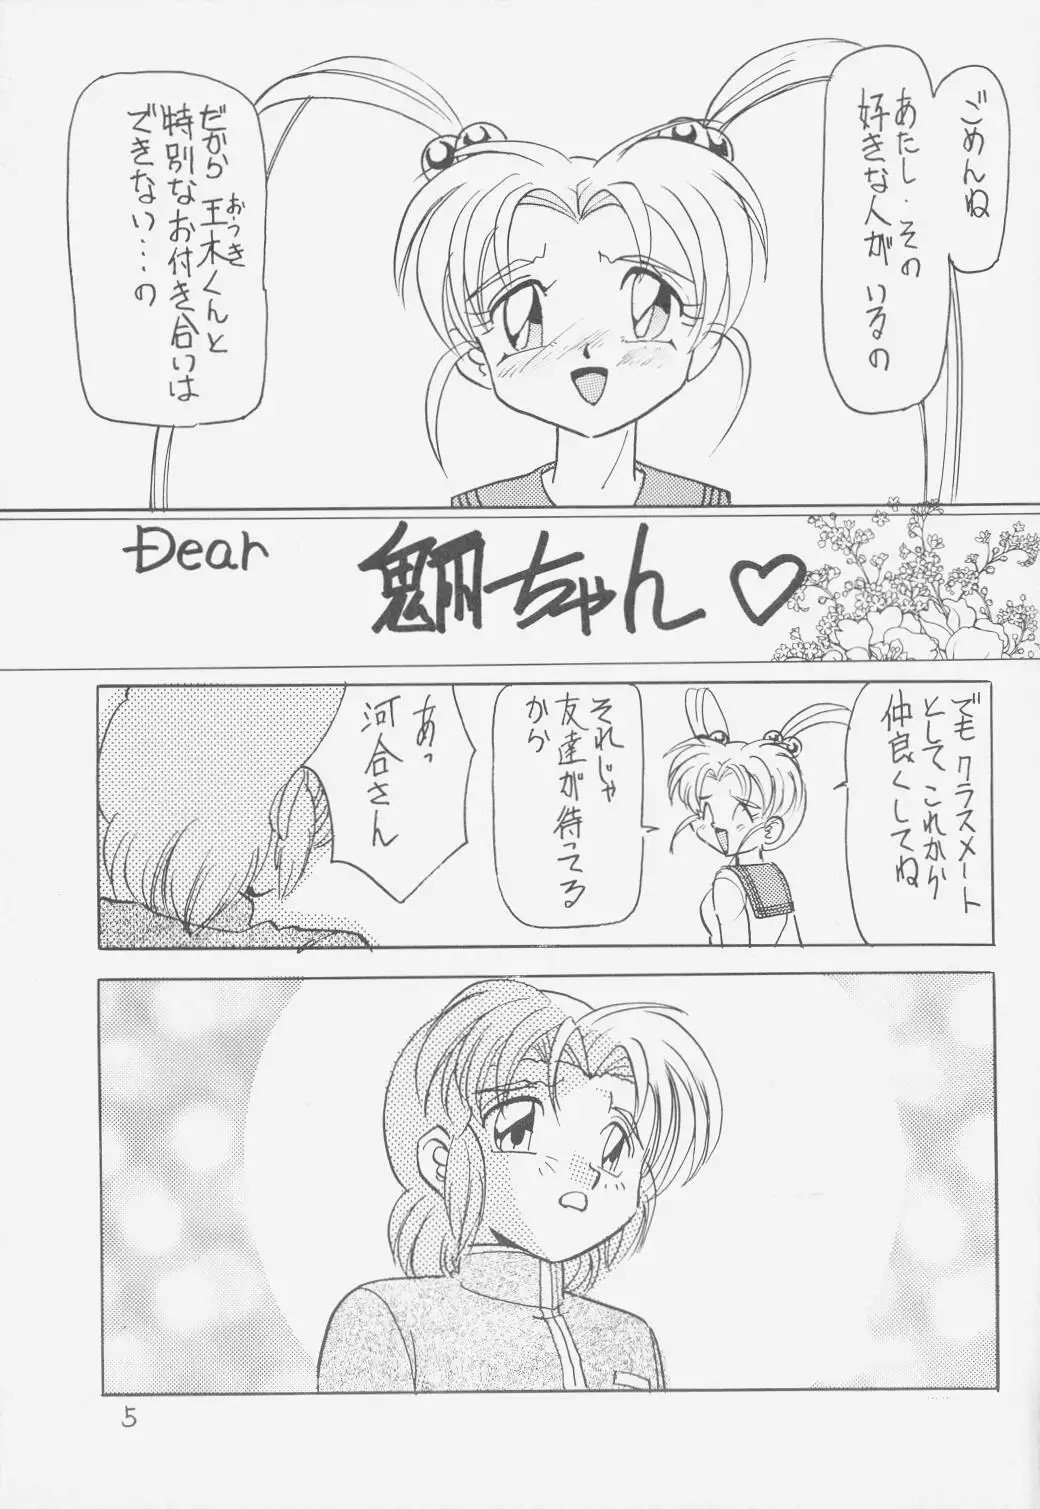 ごめんね
あたし・その
好きな人が いるの
だから 王木くんと
おっき
特別なお付き合いは
できない…の
Dear
ちゃん♡
でも クラスメート
として これから
仲良くしてね
それじゃ
友達が待ってる
から
あっ
河合さん
5